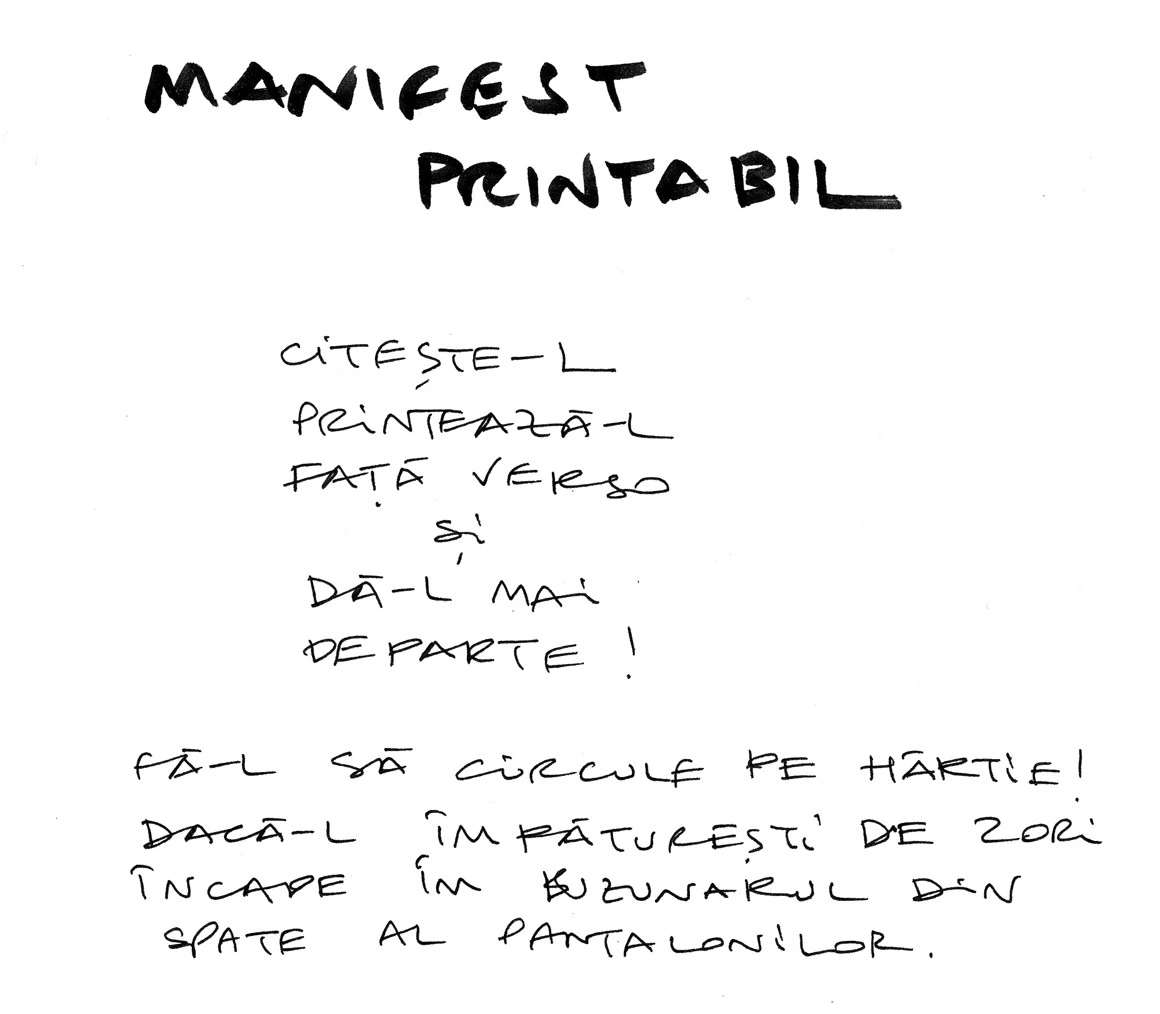 MANIFEST
PRINTABIL
CITEȘTE-L
PRINTEAZĂ-L
FAȚĂ VERSO
ȘI
DĂ-L MAI
DEPARTE !
FĂ-L SĂ CIRCULE PE HÂRTIE!
DACĂ-L ÎMPĂTUREȘTI DE 2 ORI
ÎNCAPE ÎM BUZUNARUL DIN
SPATE AL PANTALONILOR.